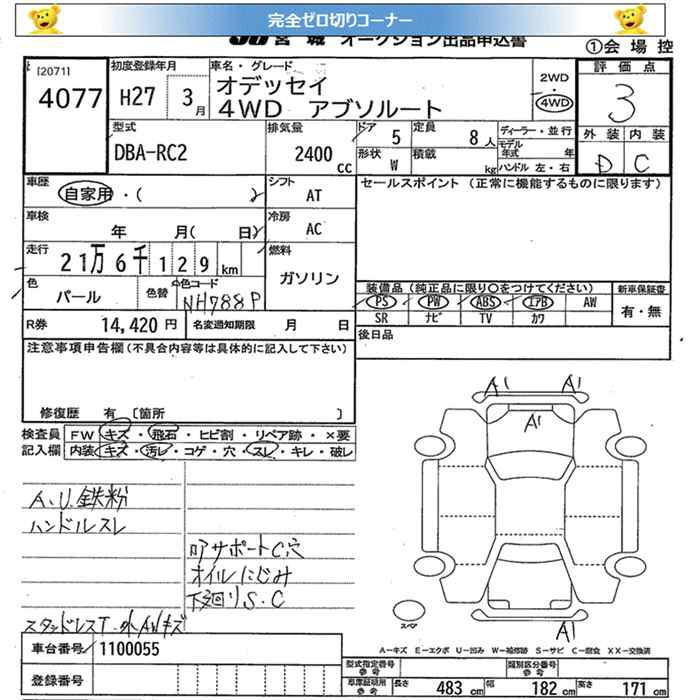 完全ゼロ切りコーナー
JU宮城 オークション出品申込書
①会場控
[2071]
4077
初度登録年月
H27 3月
車名・グレード
オデッセイ
4WD アブソルート
2WD
・
4WD
評価点
3
外装 内装
D C
型式
DBA-RC2
排気量
2400 cc
ドア 5
定員 8人
形状 W
積載 kg
ディーラー・並行
モデル年式 年
ハンドル 左・右
車歴
自家用・( )
シフト
AT
セールスポイント (正常に機能するものに限ります)
車検
年 月( 日)
冷房
AC
走行
21万6千129km
燃料
ガソリン
色
パール
色替
色コード
NH788P
装備品 (純正品に限り○をつけてください)
PS PW ABS エアB AW
SR ナビ TV カワ
新車保証書
有・無
R券 14,420円
名変通知期限 月 日
後日品
注意事項申告欄 (不具合内容等は具体的に記入して下さい)
修復歴 有 [箇所 ]
検査員記入欄
FW キズ・飛石・ヒビ割・リペア跡・×要
内装 キズ・汚レ・コゲ・穴・スレ・キレ・破レ
A.U.鉄粉
ハンドルスレ
サポートC穴
オイルにじみ
下廻りS.C
スタッドレスT.
A1 A1
A1
スペア
A1
A-キズ E-エクボ U-凹み W-補修跡 S-サビ C-腐食 XX-交換済
車台番号 1100055
登録番号
型式指定番号 参考
類別区分番号 参考
車庫証明用 参考
長さ 483 cm 幅 182 cm 高さ 171 cm